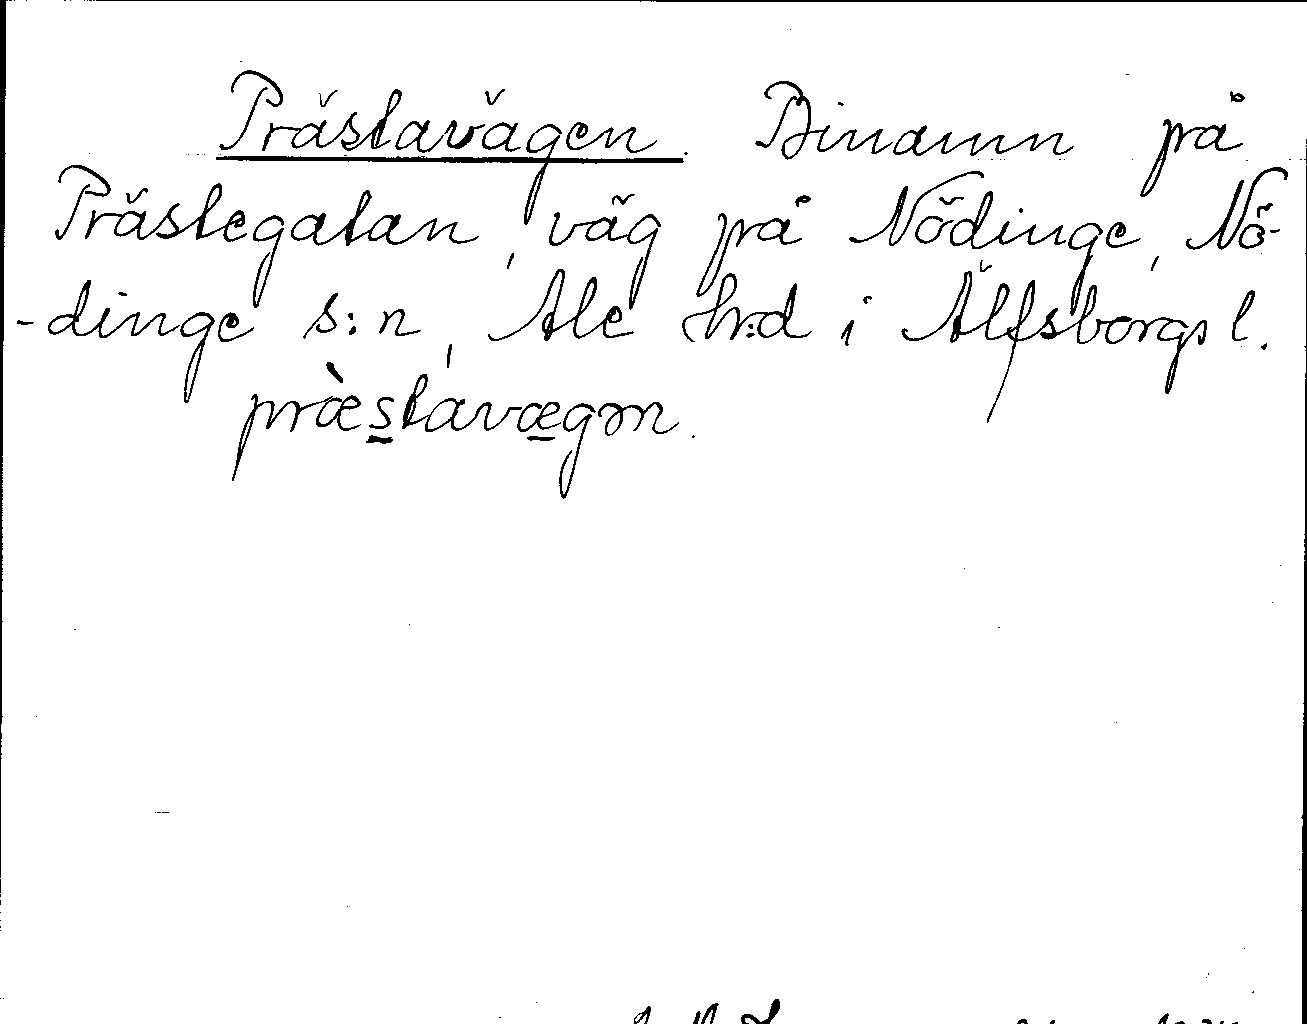 Prästavägen. Binamn på
Prästegatan, väg på Nödinge, Nö-
-dinge s:n, Ale hr:d i Älfsborgs l.
præ̀stavægən.